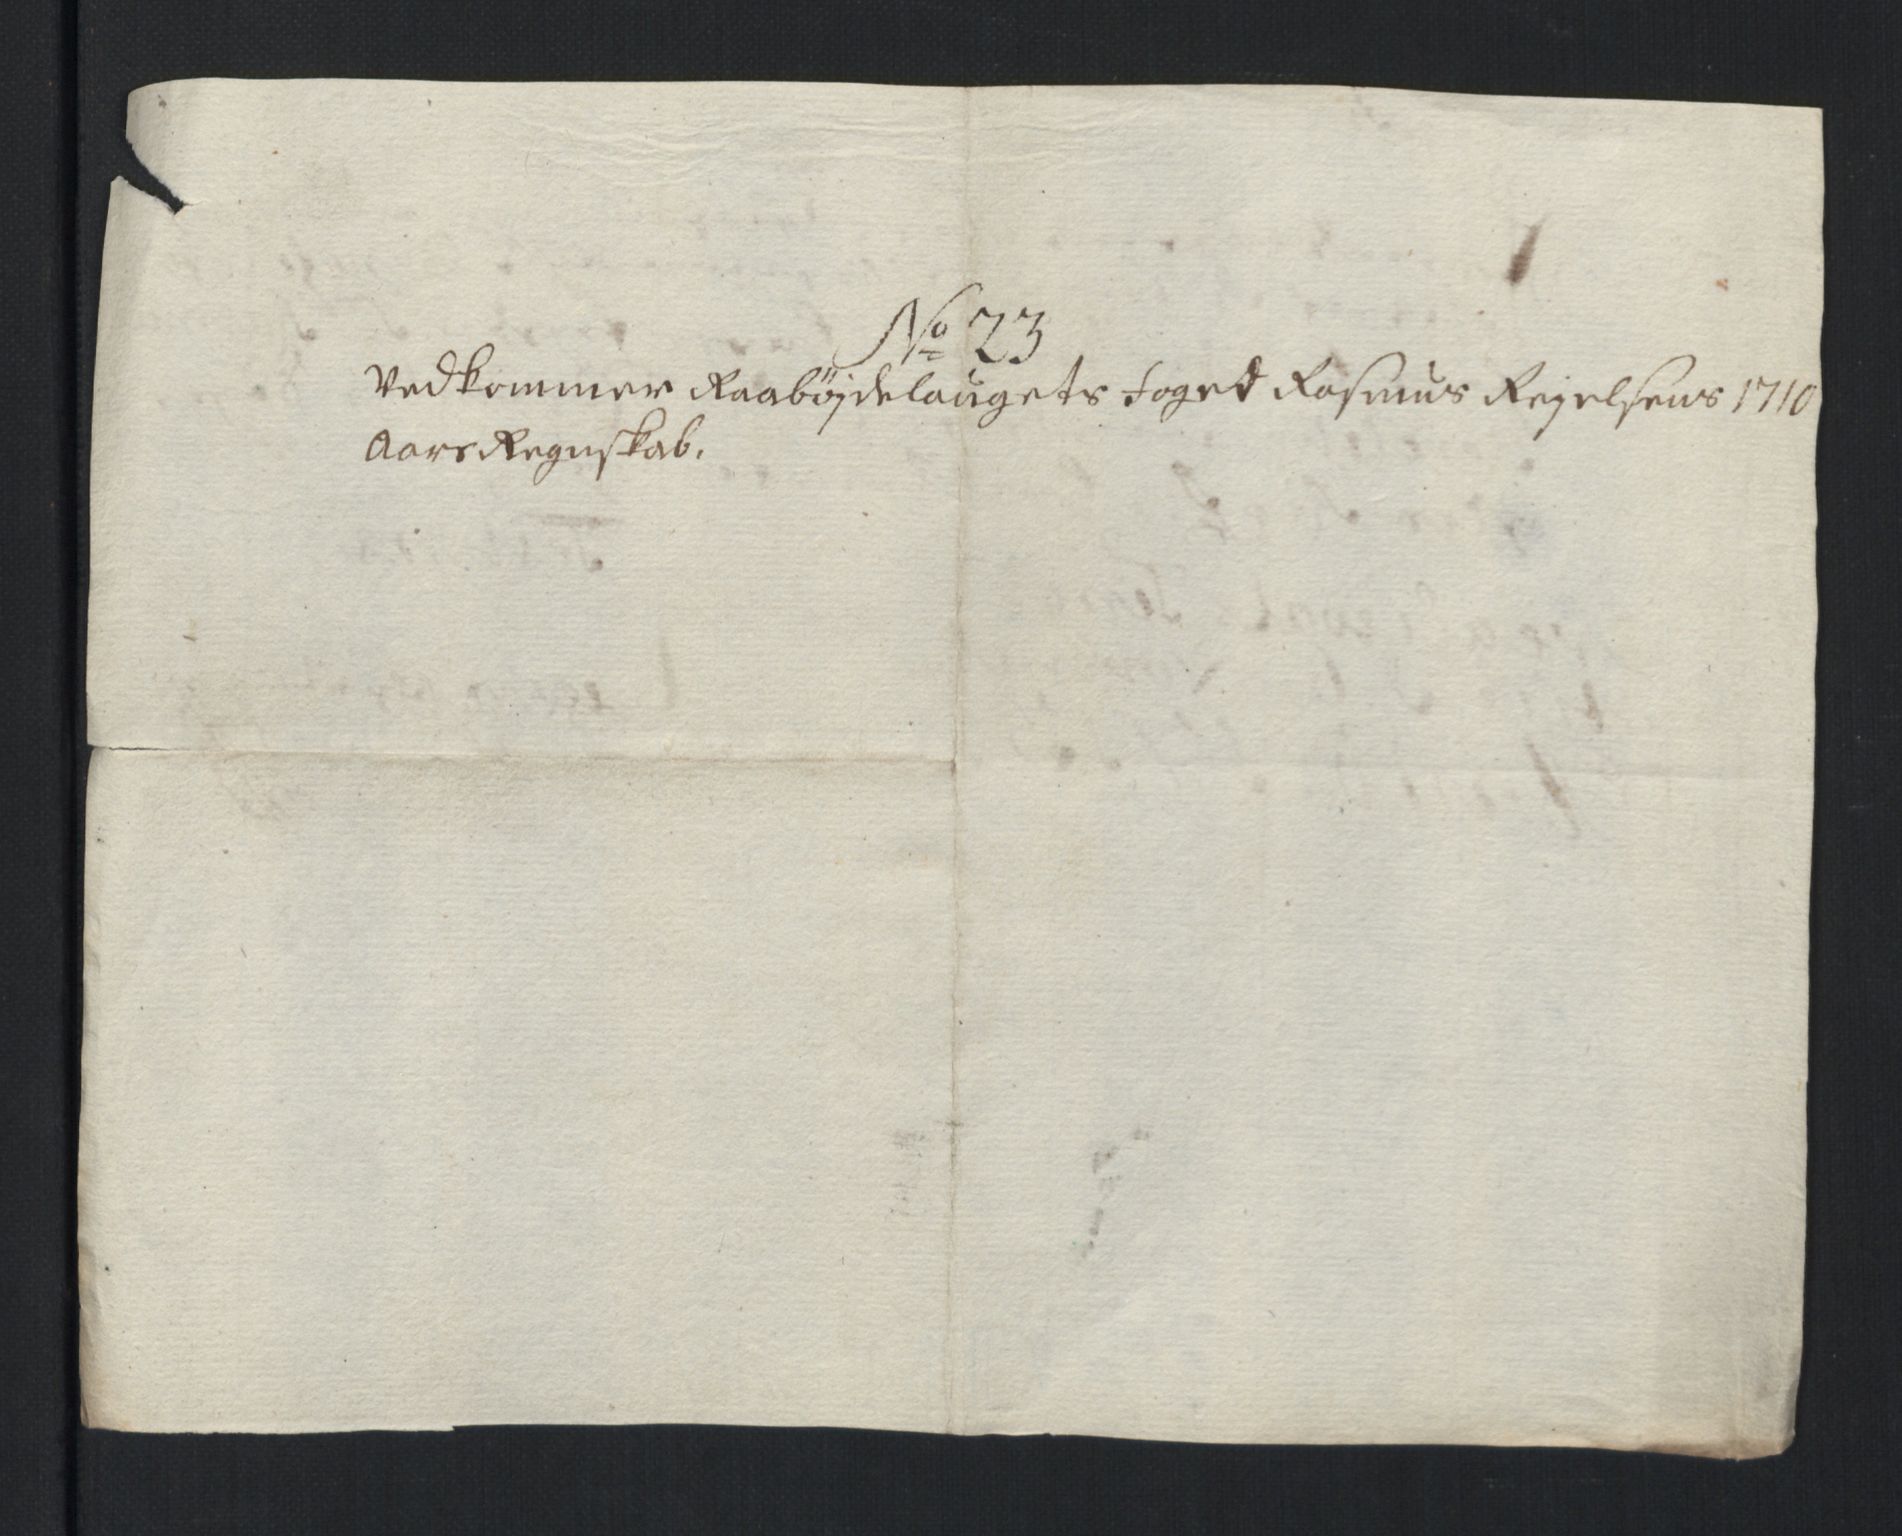 No 23
Vedkommer Raabøjdelaugets foget Rasmus Rejelsens 1710
Aars Regnskab.